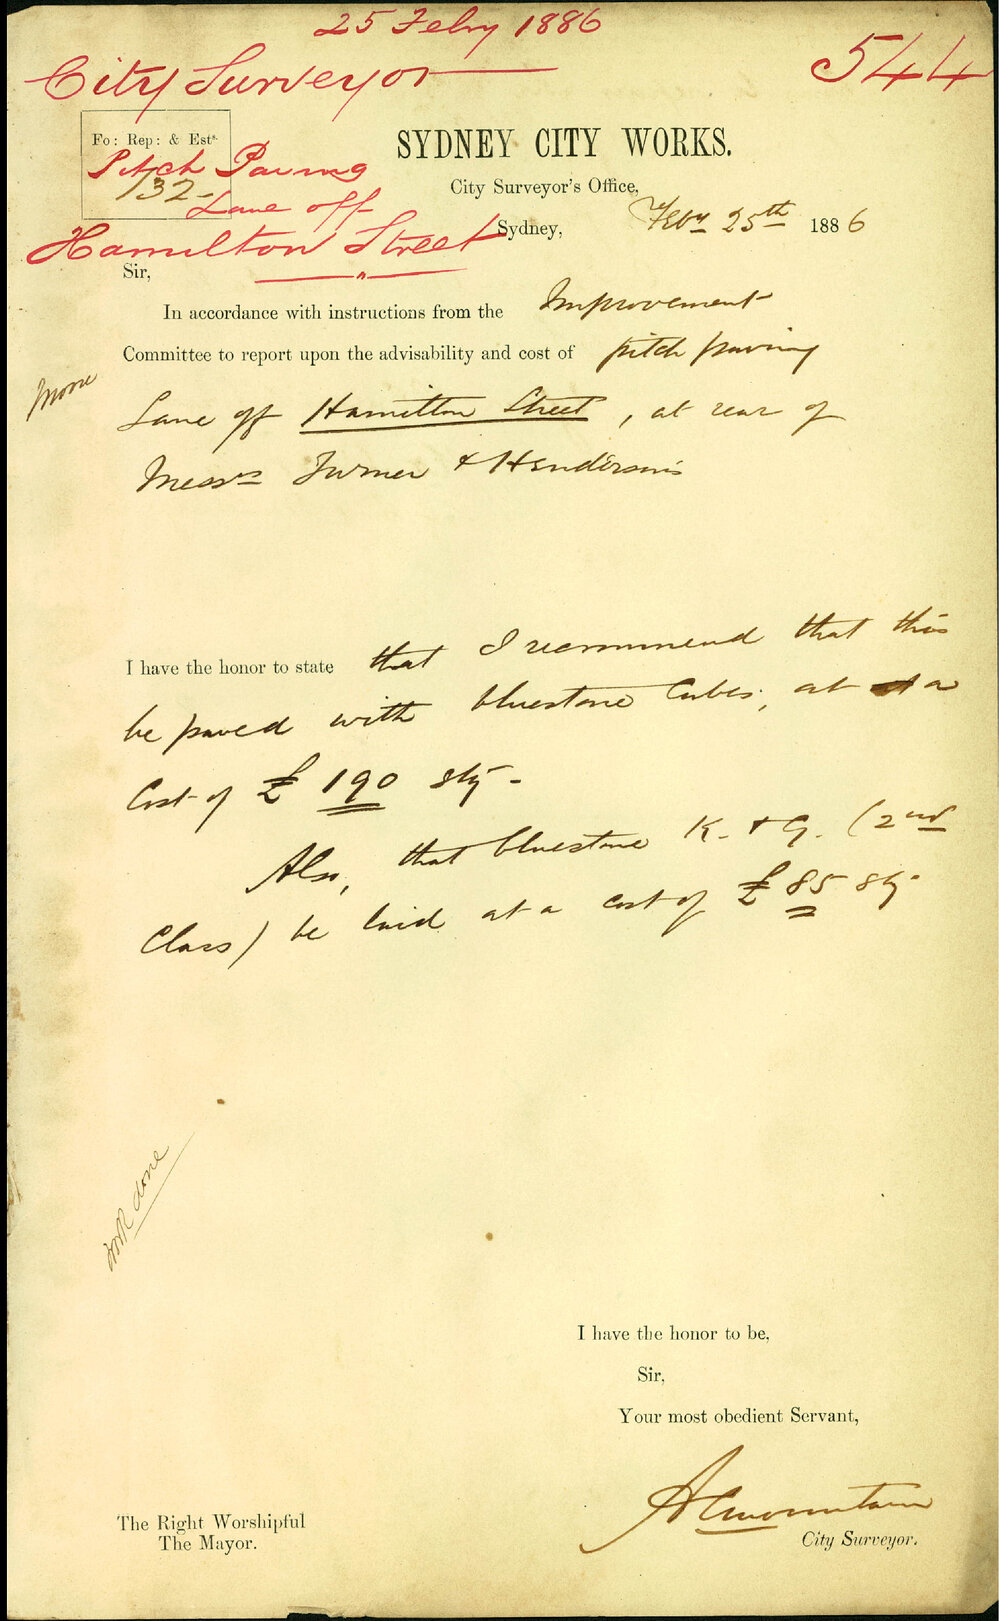 25 Feby 1886
City Surveyor
544
Fo: Rep: & Ests.
Pitch Paving
132-
Lane off
Hamilton Street
SYDNEY CITY WORKS.
City Surveyor's Office,
Sydney, Feby 25th 1886
Sir,
In accordance with instructions from the Improvement
Committee to report upon the advisability and cost of pitch paving
Lane off Hamilton Street, at rear of
Messrs Turner & Henderson's
I have the honor to state that I recommend that this
be paved with bluestone Cubes, at a
Cost of £190 stg-
Also, that bluestone K. & G. (2nd
Class) be laid at a cost of £85 stg-
work done
I have the honor to be,
Sir,
Your most obedient Servant,
A C Mountain
City Surveyor.
The Right Worshipful
The Mayor.